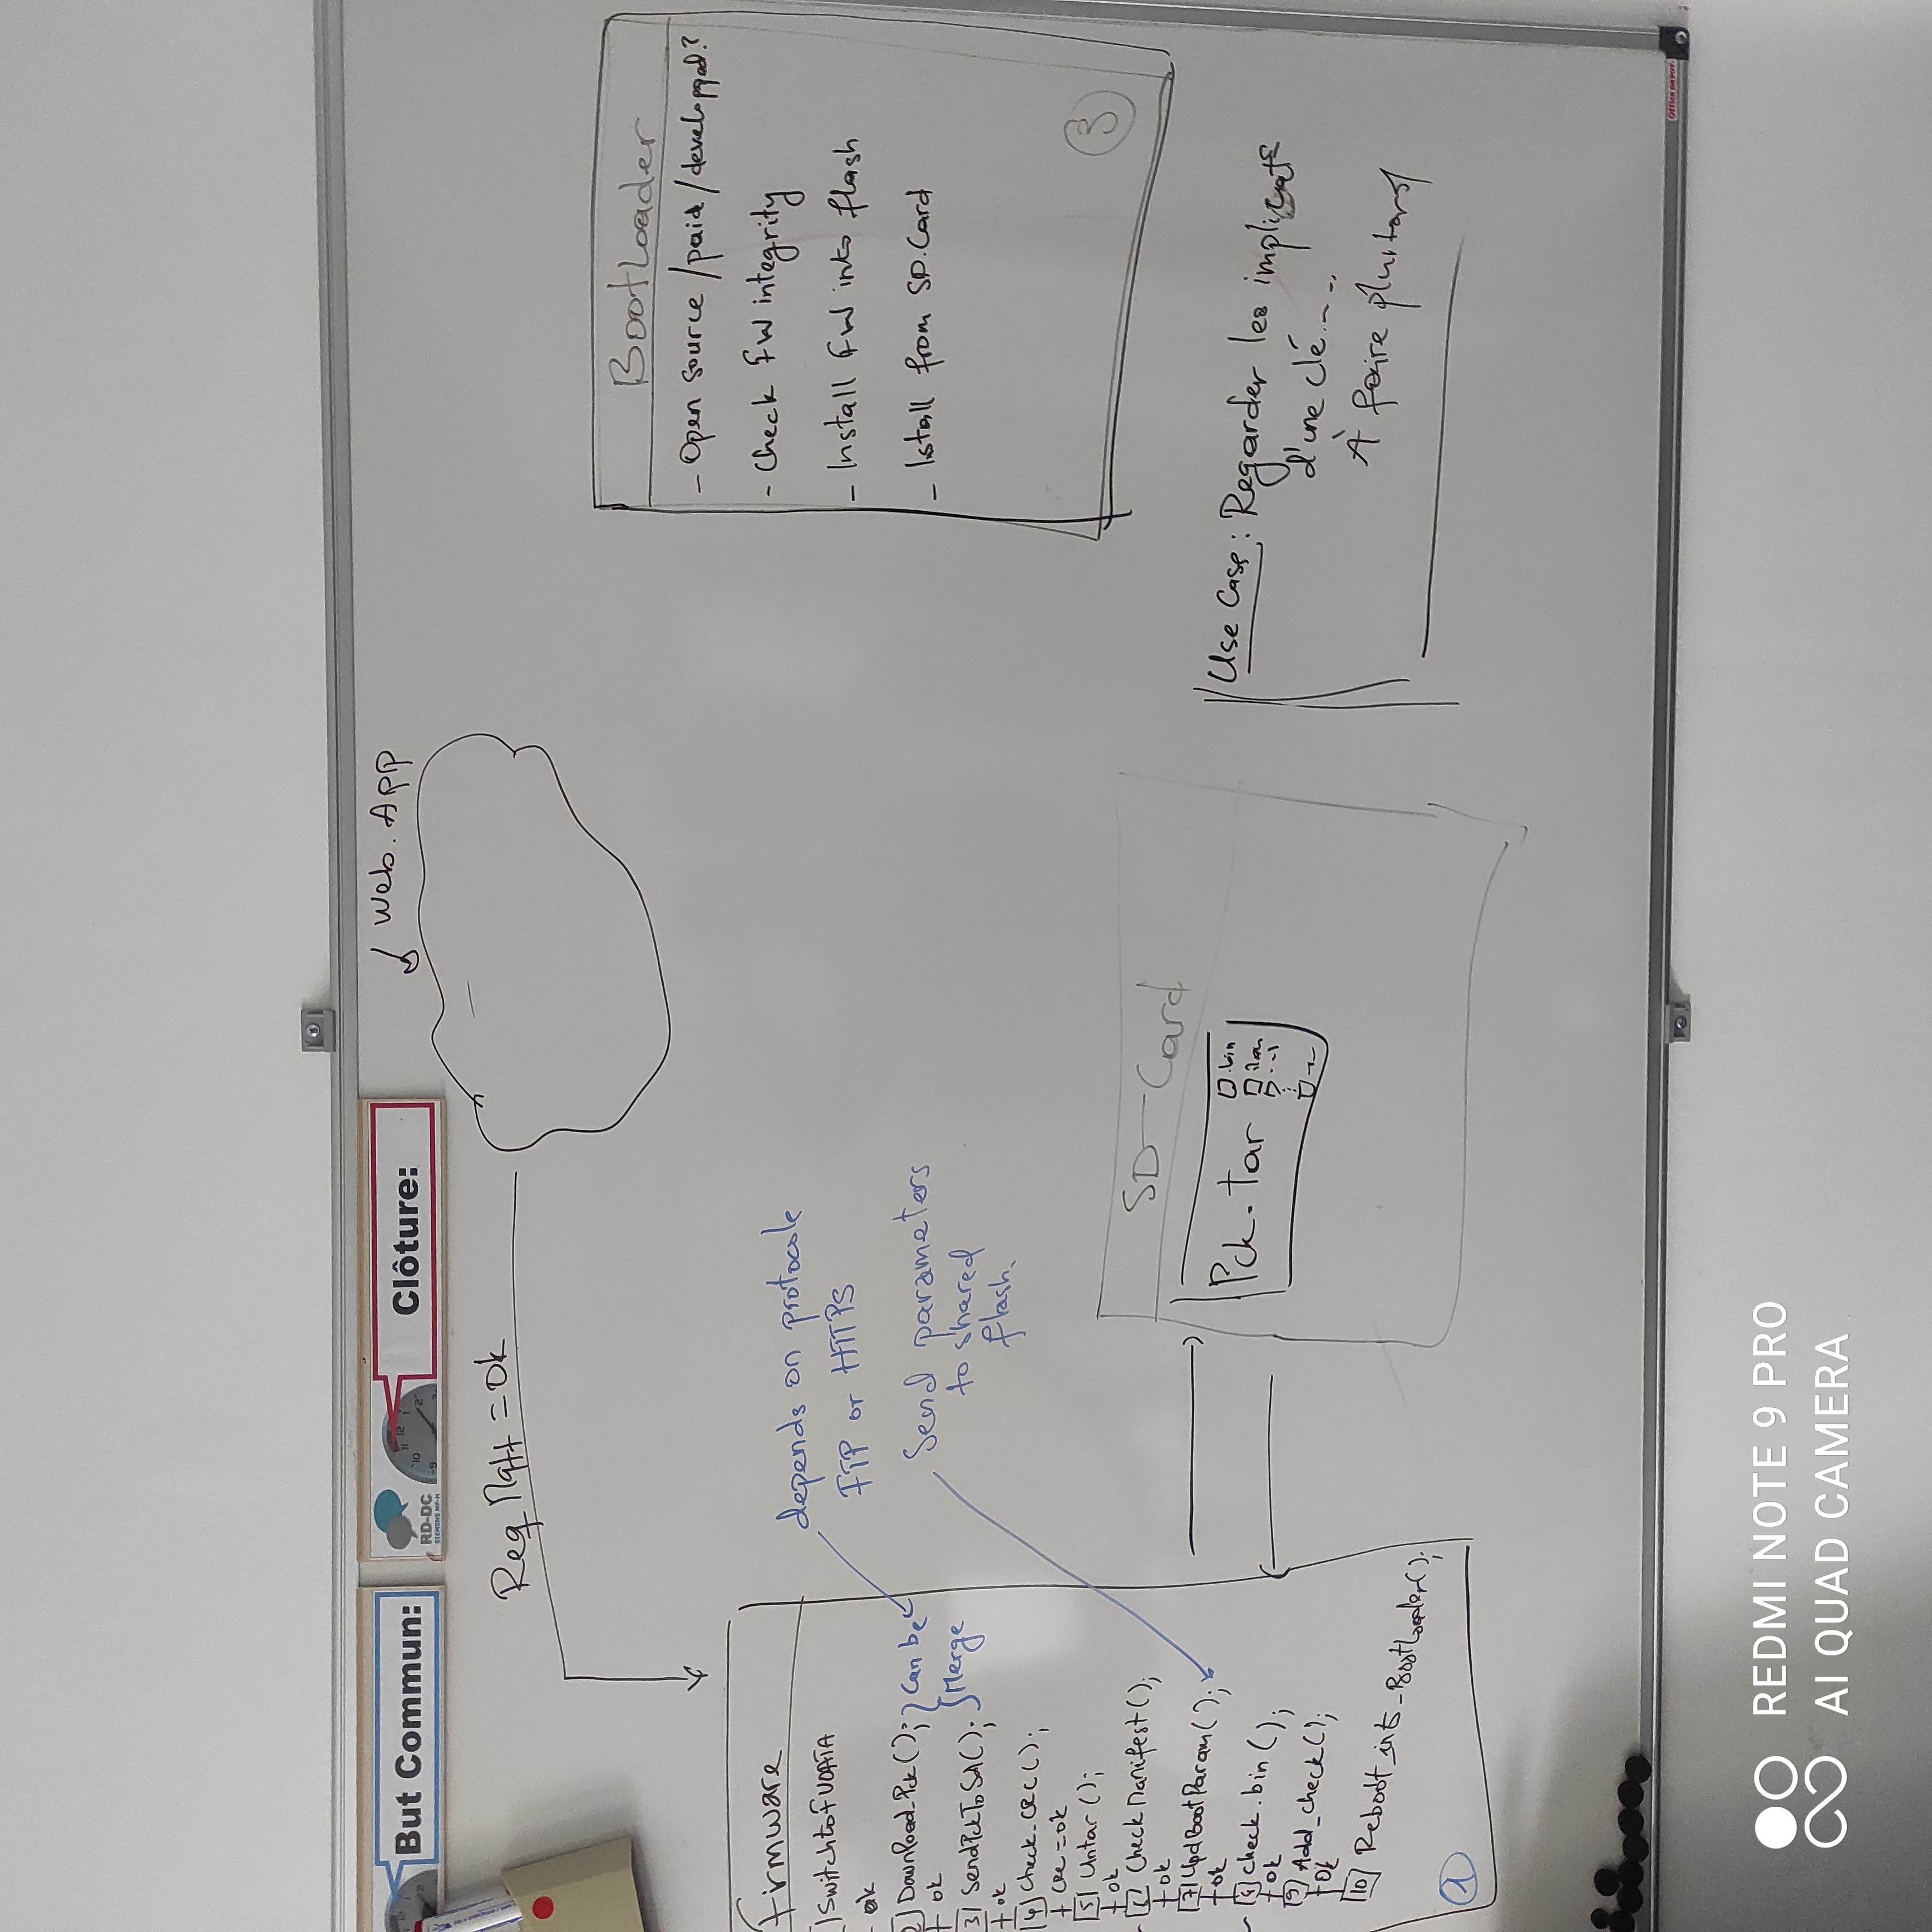 But Commun:
RD-DC
Clôture:
Web.App
Req Mqtt = Ok
Firmware
1 SwitchtoFUOATA
ok
2 Download_Pck();
ok
3 SendPckToSd();
ok
4 Check_CRC();
CRC = ok
5 Untar();
ok
Check Manifest();
ok
7 UpdBootParam();
ok
check.bin();
ok
9 Add_check();
Ok
10 Reboot_into_BootLoader();
1
Can be
Merge
depends on protocole
FTP or HTTPS
Send parameters
to shared
flash.
SD-Card
Pck.tar
.bin
BootLoader
- Open source /paid/developped?
- Check FW integrity
- Install FW into flash
- Istall from SD.Card
3
Use Case: Regarder les
d'une clé....
À faire plustard
Office DEPOT
REDMI NOTE 9 PRO
AI QUAD CAMERA